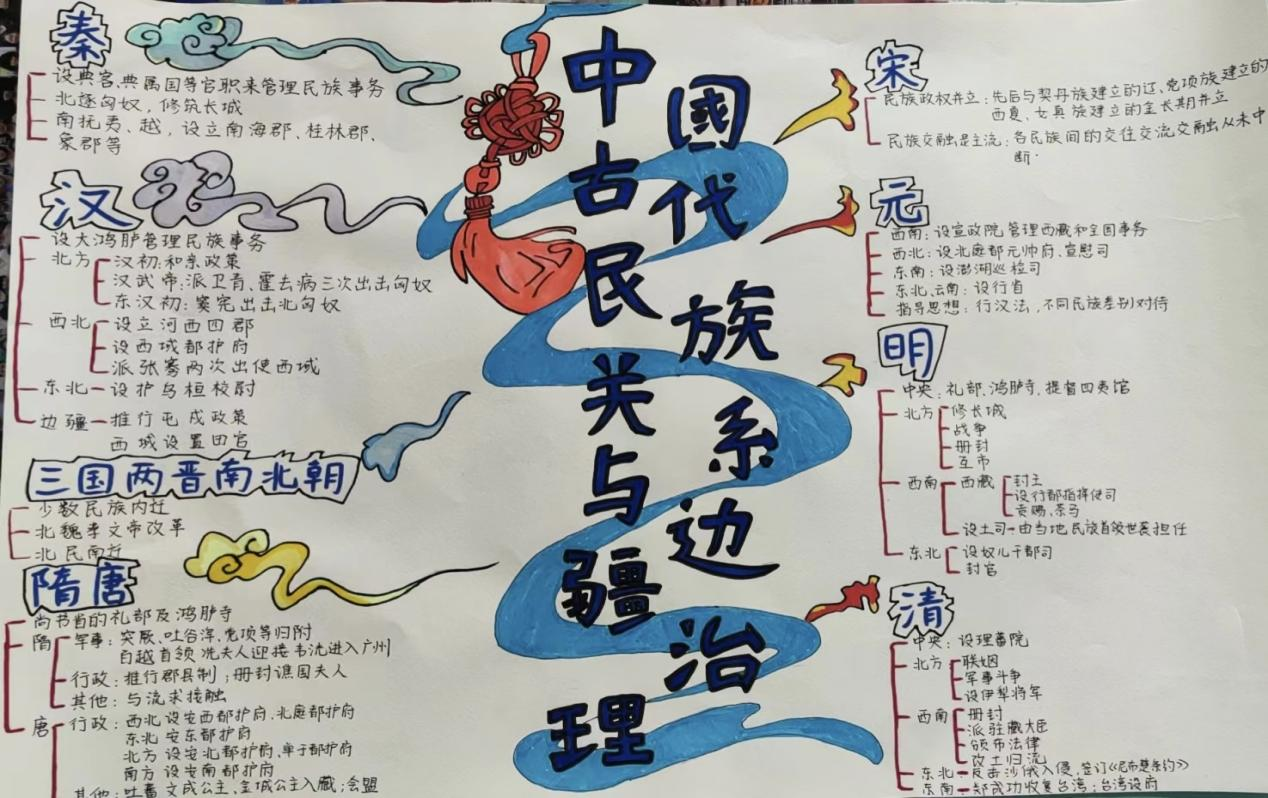 中国古代民族关系与边疆治理
秦
设典客、典属国等官职来管理民族事务
北逐匈奴，修筑长城
南抚夷、越，设立南海郡、桂林郡、
象郡等
汉
设大鸿胪管理民族事务
北方
汉初：和亲政策
汉武帝：派卫青、霍去病三次出击匈奴
东汉初：窦宪出击北匈奴
西北
设立河西四郡
设西域都护府
派张骞两次出使西域
东北 设护乌桓校尉
边疆 推行屯戍政策
西域设置田官
三国两晋南北朝
少数民族内迁
北魏孝文帝改革
北民南迁
隋唐
尚书省的礼部及鸿胪寺
隋
军事：突厥、吐谷浑、党项等归附
百越首领冼夫人迎接韦洸进入广州
行政：推行郡县制；册封谯国夫人
其他：与流求接触
唐
行政：西北 设安西都护府、北庭都护府
东北 安东都护府
北方 设安北都护府、单于都护府
南方 设安南都护府
其他：吐蕃 文成公主、金城公主入藏；会盟
宋
民族政权并立：先后与契丹族建立的辽、党项族建立的
西夏、女真族建立的金长期并立
民族交融是主流：各民族间的交往交流交融从未中
断．
元
西南：设宣政院管理西藏和全国事务
西北：设北庭都元帅府、宣慰司
东南：设澎湖巡检司
东北、云南：设行省
指导思想：行汉法，不同民族差别对待
明
中央：礼部、鸿胪寺，提督四夷馆
北方
修长城
战争
册封
互市
西南
西藏
封王
设行都指挥使司
贡赐、茶马
设土司 由当地民族首领世袭担任
东北
设奴儿干都司
封官
清
中央：设理蕃院
北方
联姻
军事斗争
设伊犁将军
西南
册封
派驻藏大臣
颁布法律
改土归流
东北 反击沙俄入侵，签订《尼布楚条约》
东南 郑成功收复台湾；台湾设府